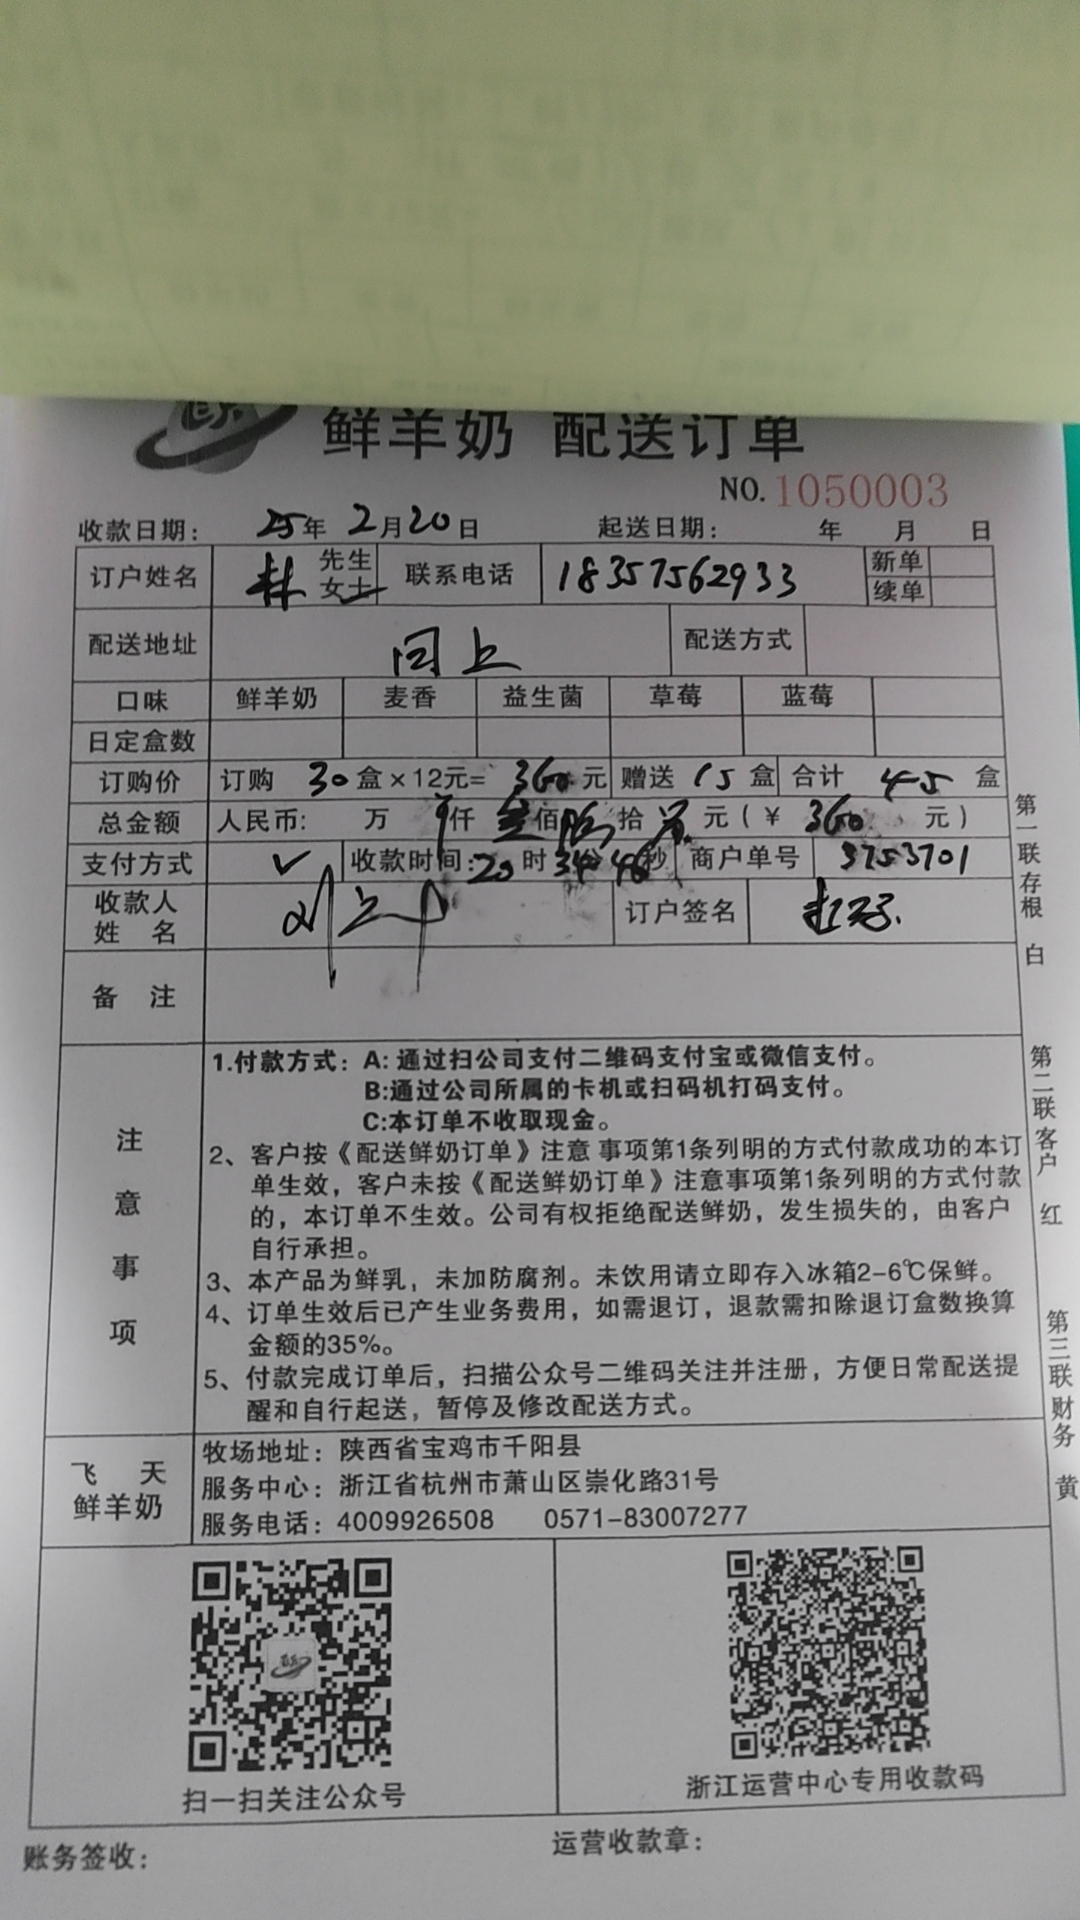 鲜羊奶 配送订单
NO. 1050003
收款日期： 25年 2月20日 起送日期： 年 月 日
订户姓名 林 先生 女士 联系电话 18357562933 新单 续单
配送地址 同上 配送方式
口味 鲜羊奶 麦香 益生菌 草莓 蓝莓
日定盒数
订购价 订购 30盒×12元= 360元 赠送 15盒 合计 45 盒
总金额 人民币： 万 仟 叁佰 陆拾 元（￥ 360 元）
支付方式 ✓ 收款时间：20时34分46秒 商户单号 3753701
收款人姓名 订户签名
备 注
注意事项
1.付款方式：A: 通过扫公司支付二维码支付宝或微信支付。
B:通过公司所属的卡机或扫码机打码支付。
C:本订单不收取现金。
2、客户按《配送鲜奶订单》注意 事项第1条列明的方式付款成功的本订
单生效，客户未按《配送鲜奶订单》注意事项第1条列明的方式付款
的，本订单不生效。公司有权拒绝配送鲜奶，发生损失的，由客户
自行承担。
3、本产品为鲜乳，未加防腐剂。未饮用请立即存入冰箱2-6℃保鲜。
4、订单生效后已产生业务费用，如需退订，退款需扣除退订盒数换算
金额的35%。
5、付款完成订单后，扫描公众号二维码关注并注册，方便日常配送提
醒和自行起送，暂停及修改配送方式。
飞 天 鲜羊奶
牧场地址：陕西省宝鸡市千阳县
服务中心：浙江省杭州市萧山区崇化路31号
服务电话：4009926508 0571-83007277
扫一扫关注公众号
浙江运营中心专用收款码
账务签收：
运营收款章：
第一联存根 白
第二联客户 红
第三联财务 黄